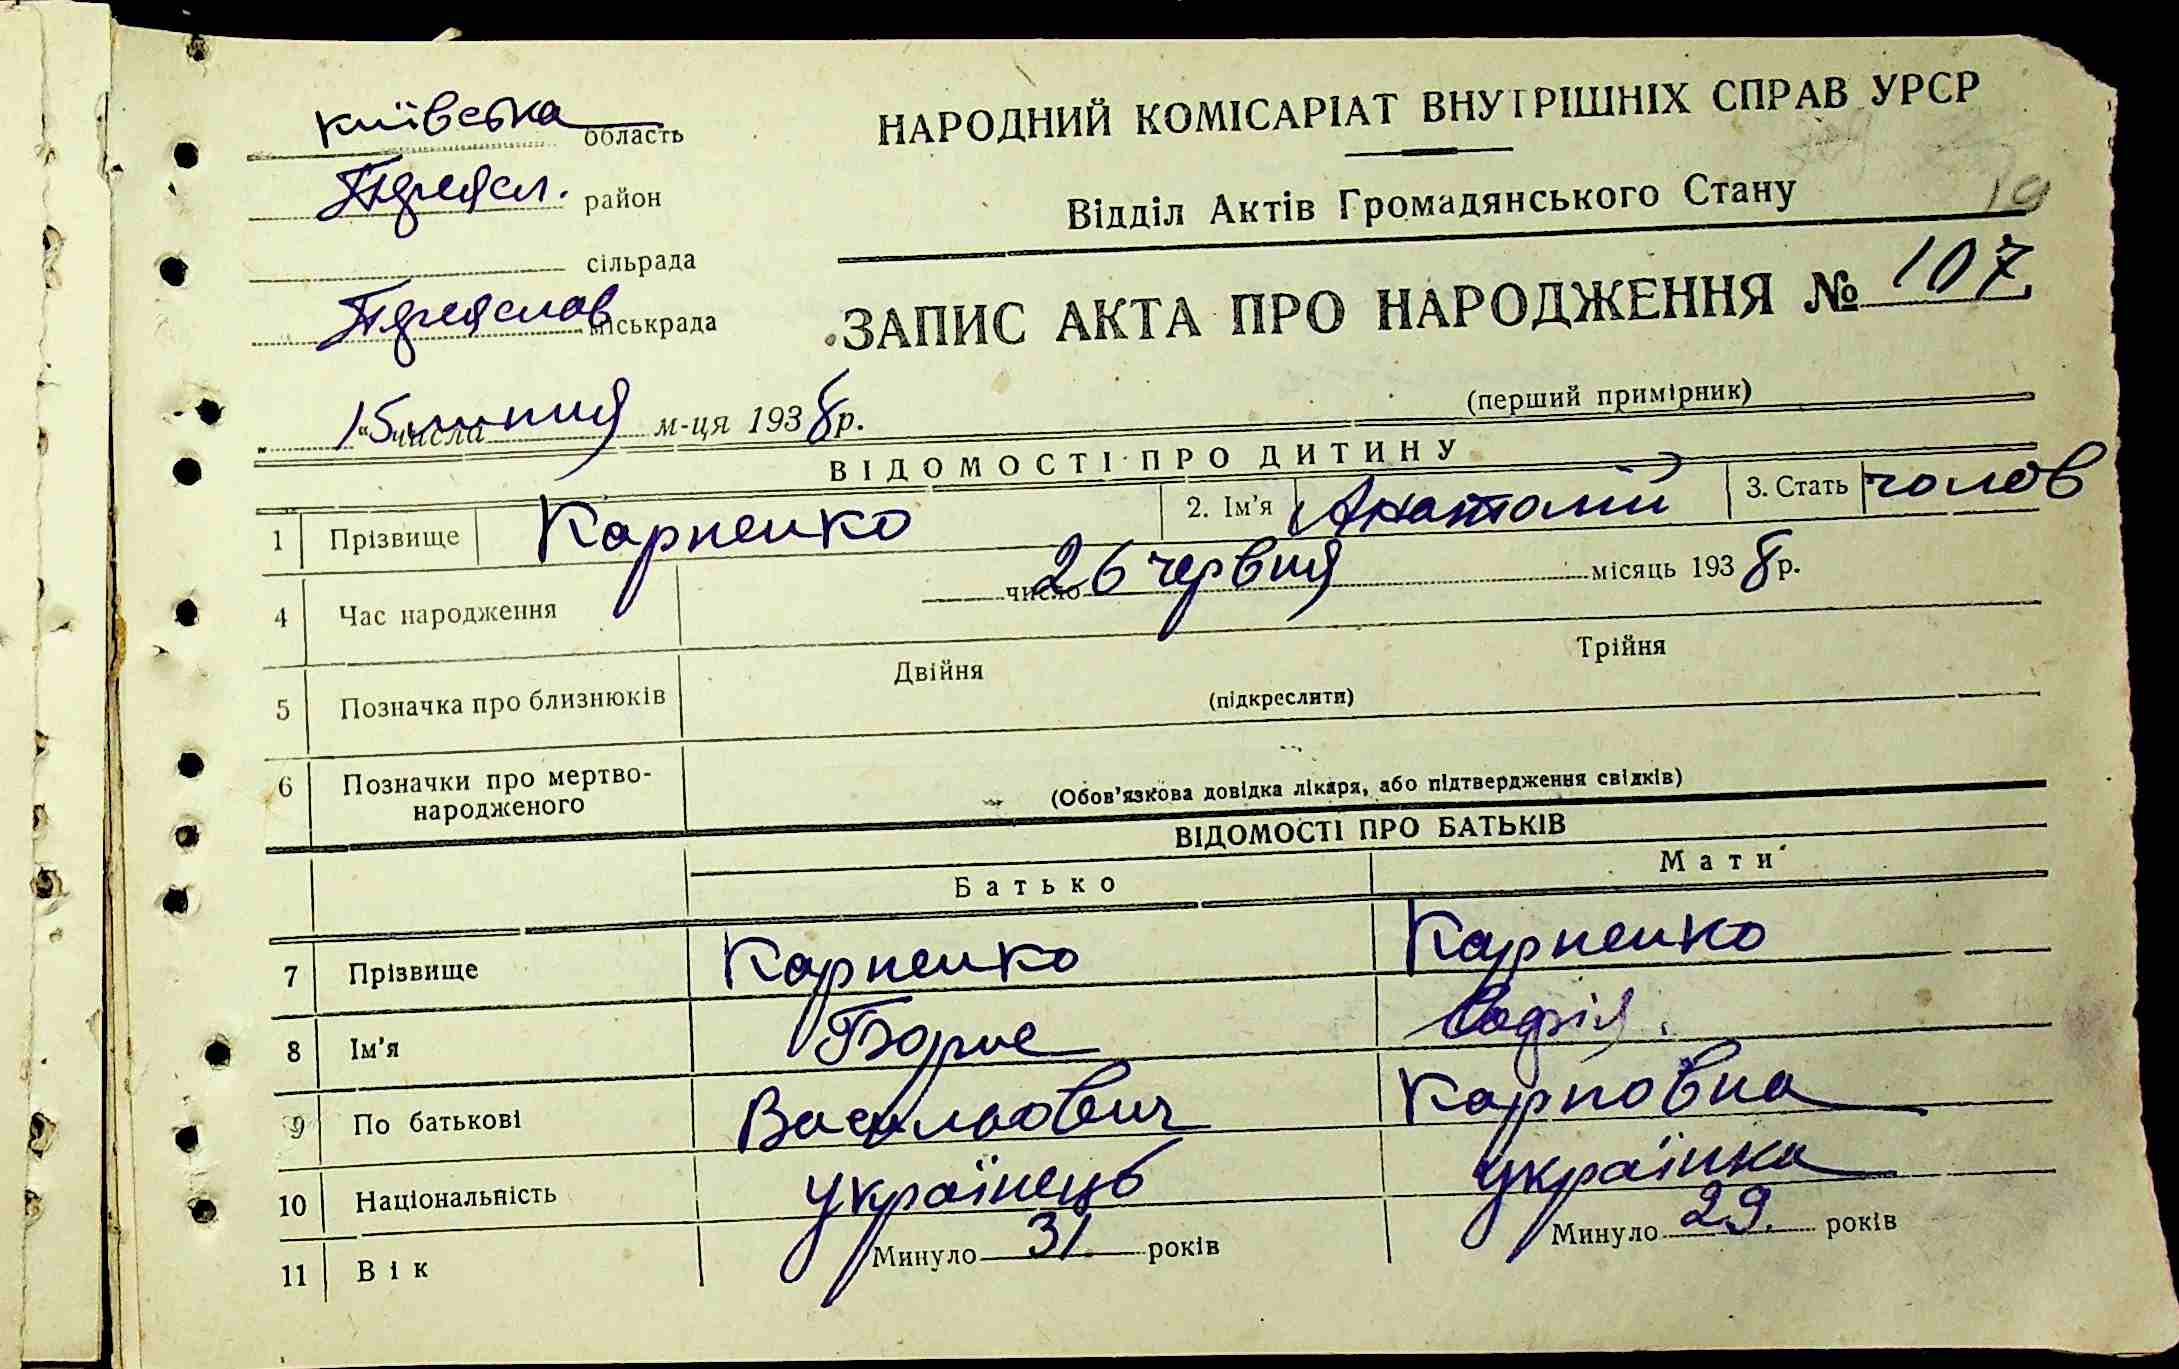 київська область
НАРОДНИЙ КОМІСАРІАТ ВНУТРІШНІХ СПРАВ УРСР
Переясл. район
Відділ Актів Громадянського Стану
19
сільрада
Переяслав міськрада
ЗАПИС АКТА ПРО НАРОДЖЕННЯ № 107
(перший примірник)
„ 15 “ числа липня м-ця 1938 р.
ВІДОМОСТІ ПРО ДИТИНУ
1 Прізвище Карпенко 2. Ім'я Анатолій 3. Стать чолов
4 Час народження число 26 червня місяць 1938 р.
5 Позначка про близнюків Двійня Трійня
(підкреслити)
6 Позначки про мертво-
народженого
(Обов'язкова довідка лікаря, або підтвердження свідків)
ВІДОМОСТІ ПРО БАТЬКІВ
Батько Мати
7 Прізвище Карпенко Карпенко
8 Ім'я Борис Софія.
9 По батькові Васильович Карповна
10 Національність українець українка
11 Вік Минуло 31. років Минуло 29. років